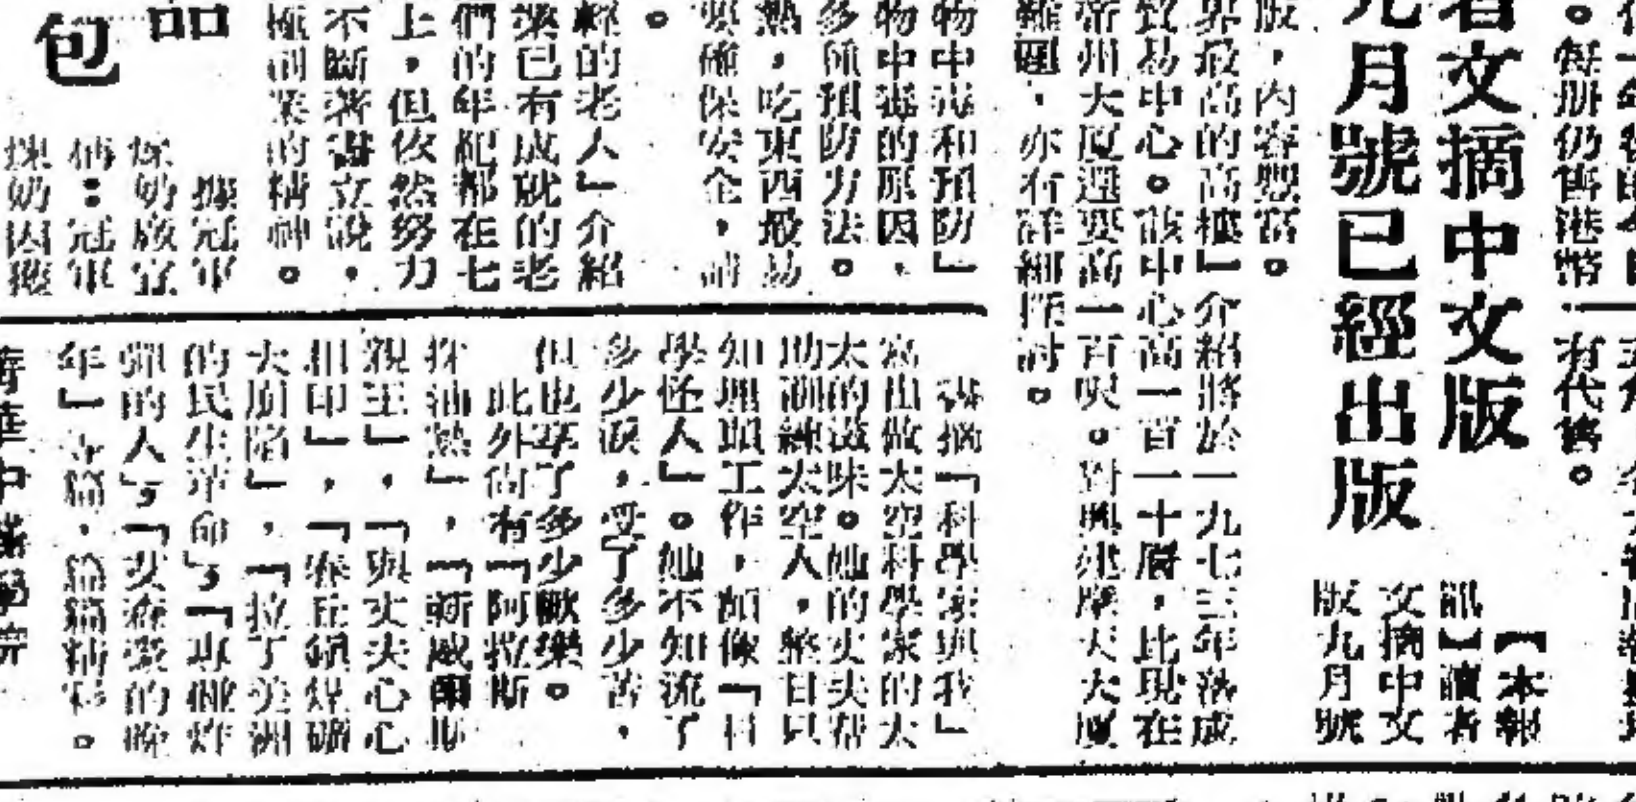 。每册仍售港幣
有代售。
者文摘中文版
九月號已經出版
【本報
訊】讀者
文摘中文
版九月號
版,內容豐富。
界最高的高樓」介紹將於一九七三年落成
貿易中心。該中心高一百一十層,比現在
帝州大厦還要高一百呎。對興建摩天大厦
難題,亦有詳細探討。
物中毒和預防」
物中毒的原因,
多種預防方法。
熱,吃東西最易
要確保安全,請
。
輕的老人」介紹
業已有成就的老
們的年紀都在七
上,但依然努力
不斷著書立說,
極創業的精神。
品
包
據冠軍
煉奶廠宣
佈:冠軍
煉奶因獲
漪摘「科學家與我」
寫出做太空科學家的太
太的滋味。她的丈夫帮
助訓練太空人,整日只
知埋頭工作,頗像「科
學怪人」。她不知流了
多少淚,受了多少苦,
但也享了多少歡樂。
此外尚有「阿拉斯
探油熱」,「新威爾斯
親王」,「與丈夫心心
相印」,「泰丘銅煤礦
大崩陷」,「拉丁美洲
的民生革命」,「專種炸
彈的人」,「艾森豪的晚
年」等篇,篇篇精彩。